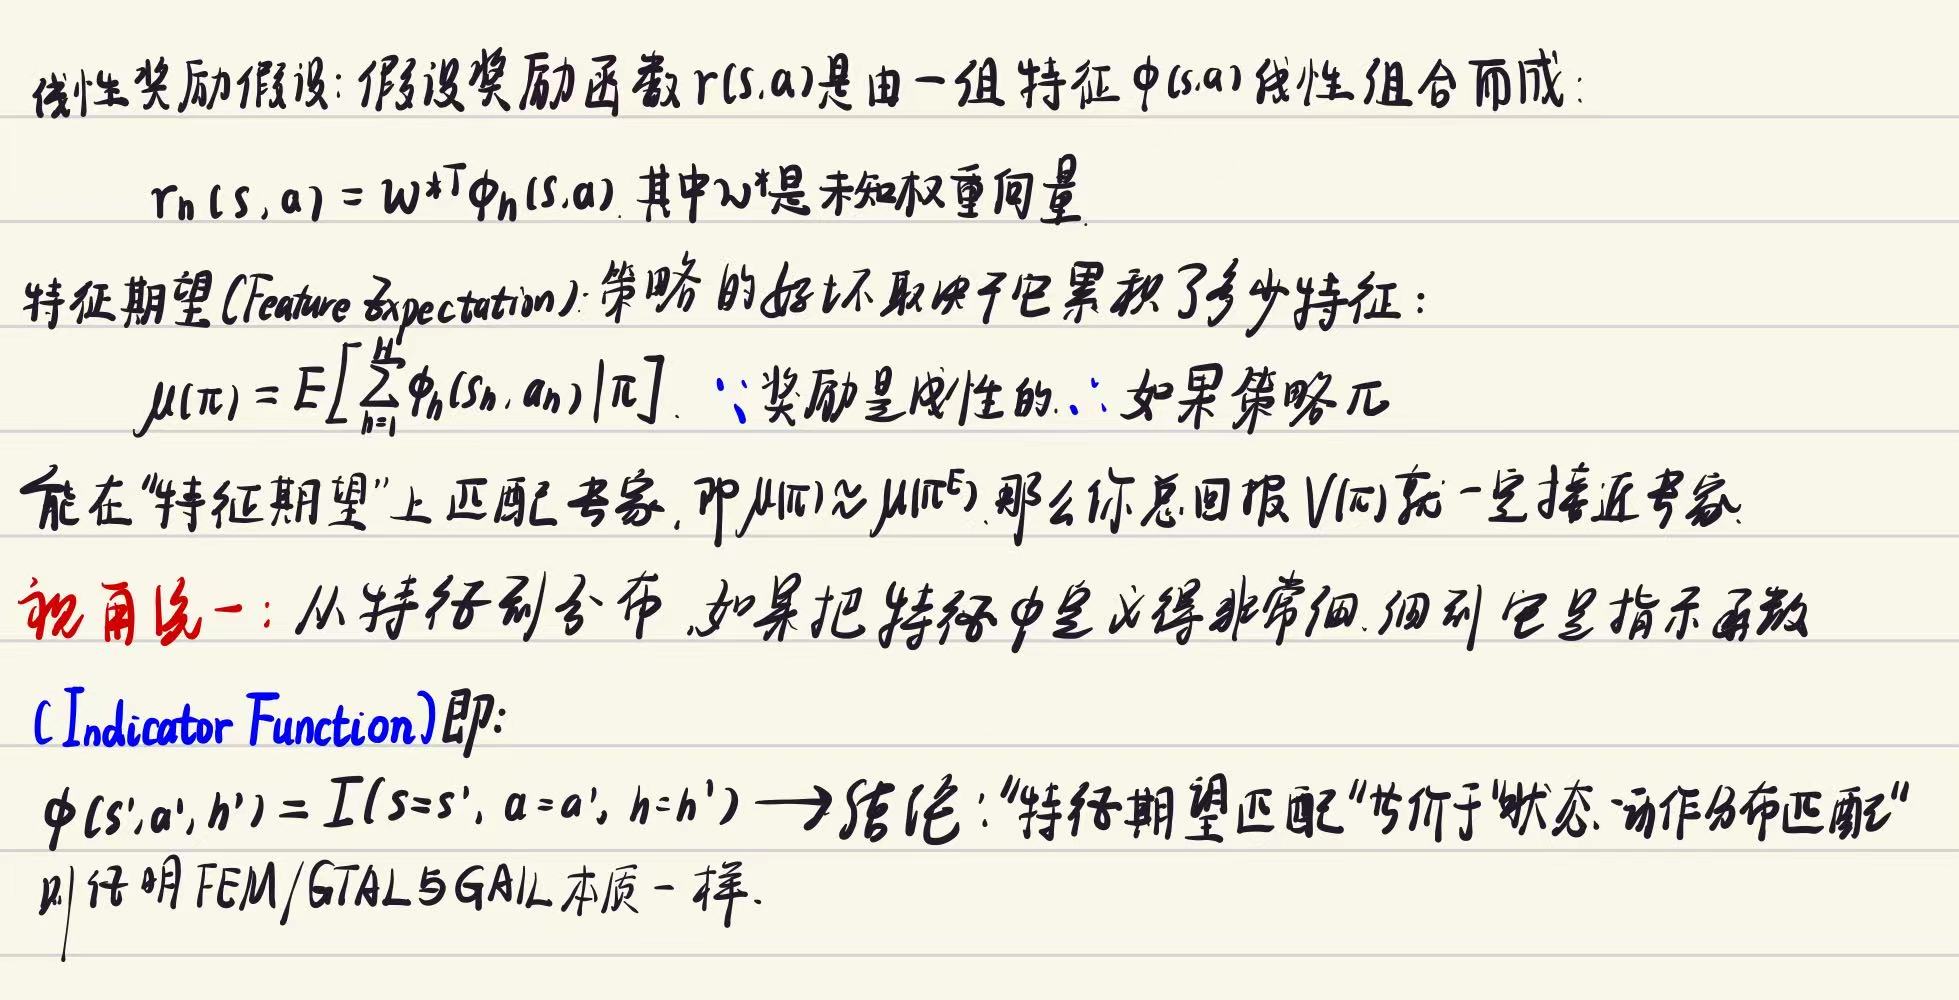 线性奖励假设:假设奖励函数r(s,a)是由一组特征φ(s,a)线性组合而成:
rₕ(s,a)=w*ᵀφₕ(s,a).其中w*是未知权重向量.
特征期望(Feature Expectation):策略的好坏取决于它累积了多少特征:
μ(π)=E[∑ₕ₌₁ᴴφₕ(sₕ,aₕ)|π]. ∵奖励是线性的.∴如果策略π
能在“特征期望”上匹配专家,即μ(π)≈μ(πᴱ),那么你总回报V(π)就一定接近专家.
视角统一:从特征到分布,如果把特征φ定义得非常细,细到它是指示函数
(Indicator Function)即:
φ(s',a',h')=I(s=s',a=a',h=h')→结论:“特征期望匹配”等价于“状态-动作分布匹配”
则证明FEM/GTAL与GAIL本质一样.